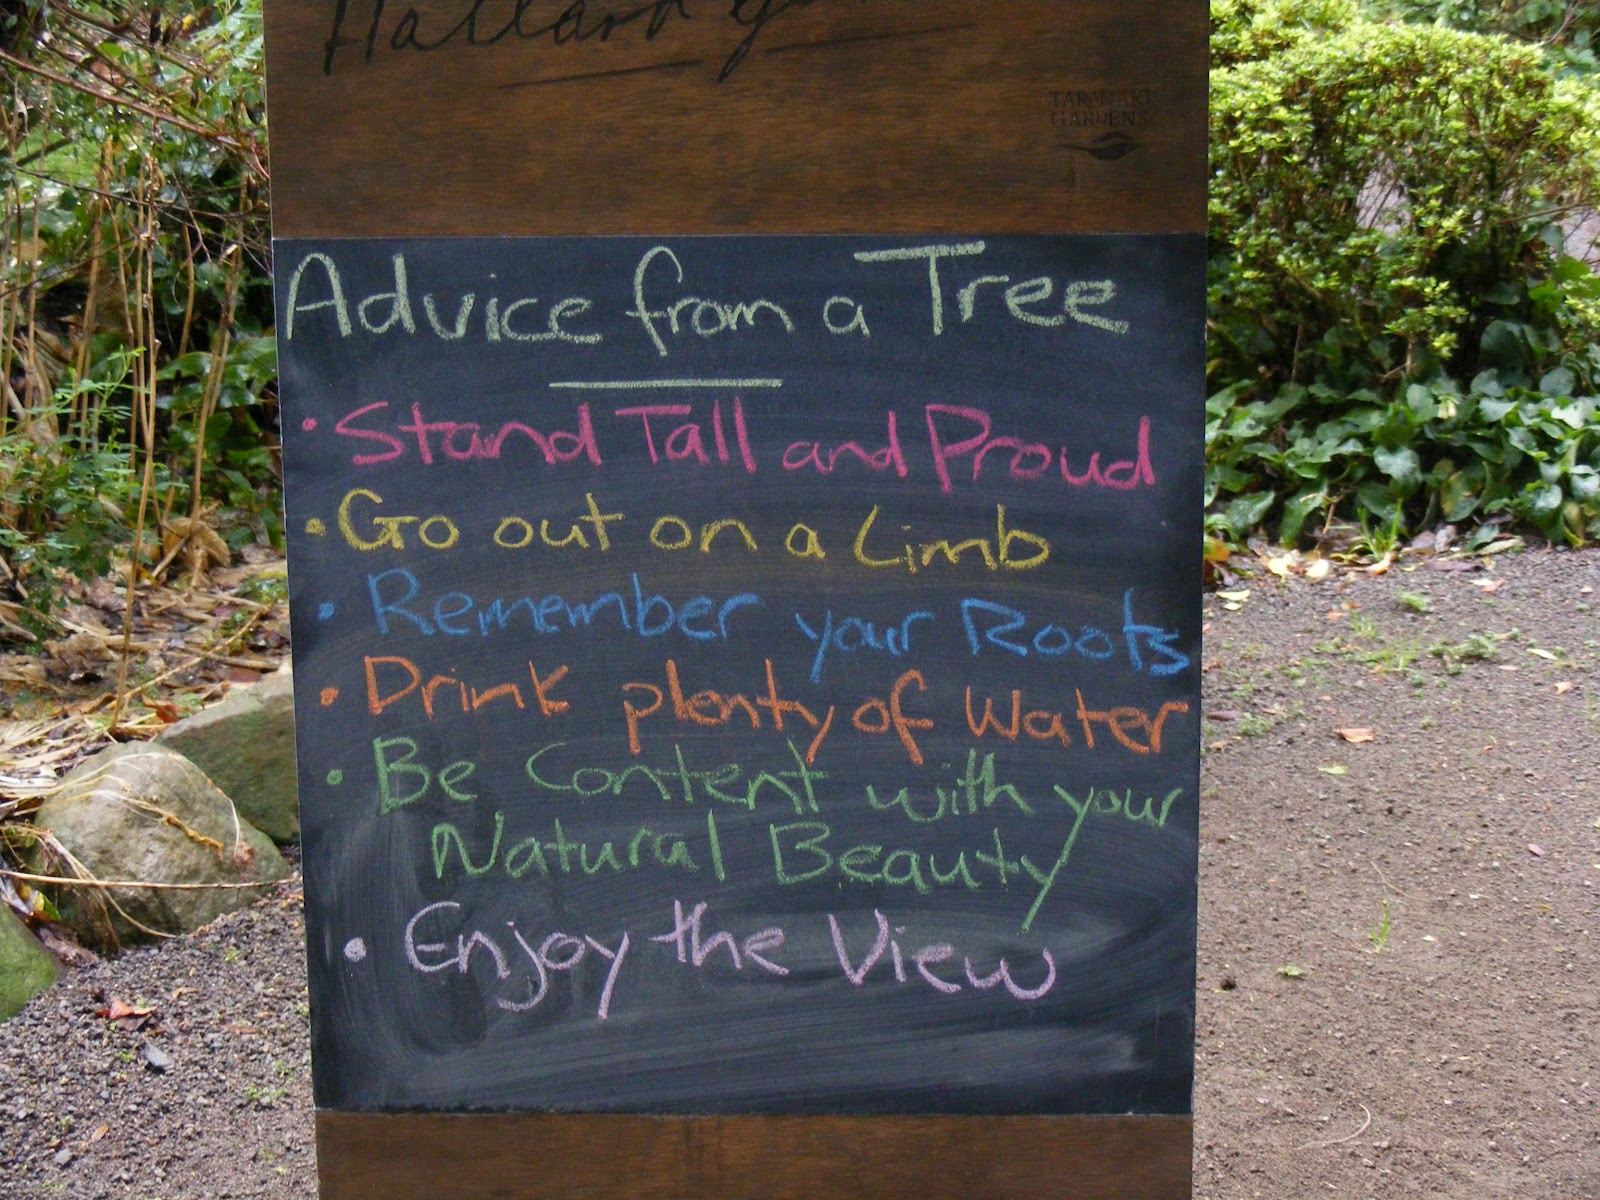 TARANAKI
GARDENS
Advice from a Tree
• Stand Tall and Proud
• Go out on a Limb
• Remember your Roots
• Drink plenty of Water
• Be Content with your
Natural Beauty
• Enjoy the View